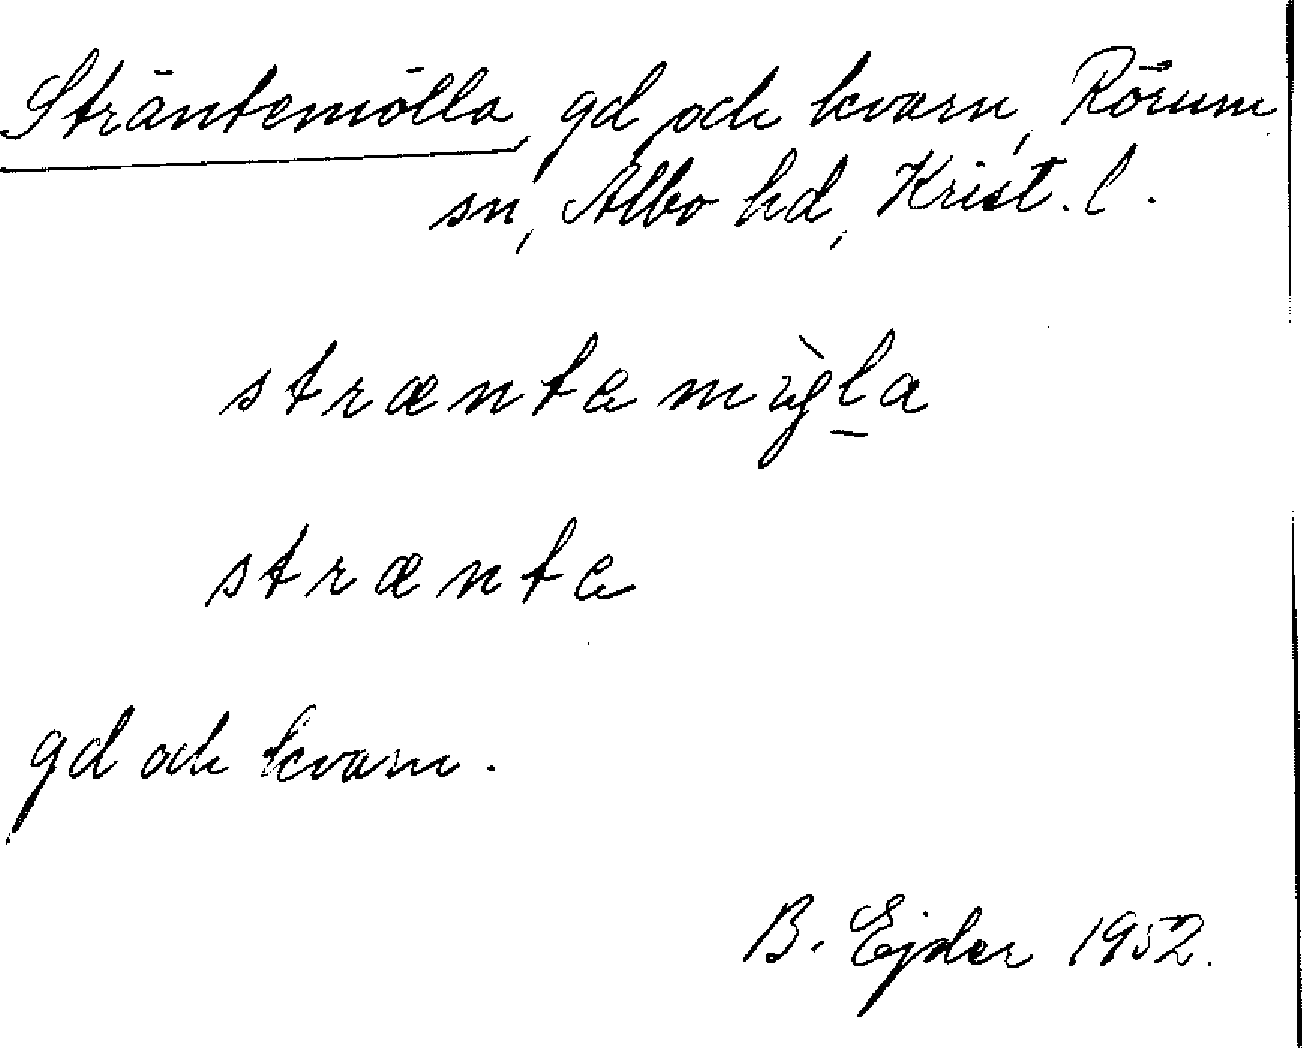 Sträntemölla, gd och kvarn, Rörum
sn, Albo hd, Krist. l.
stræntemỳla
strænte
gd och kvarn.
B. Ejder 1952.